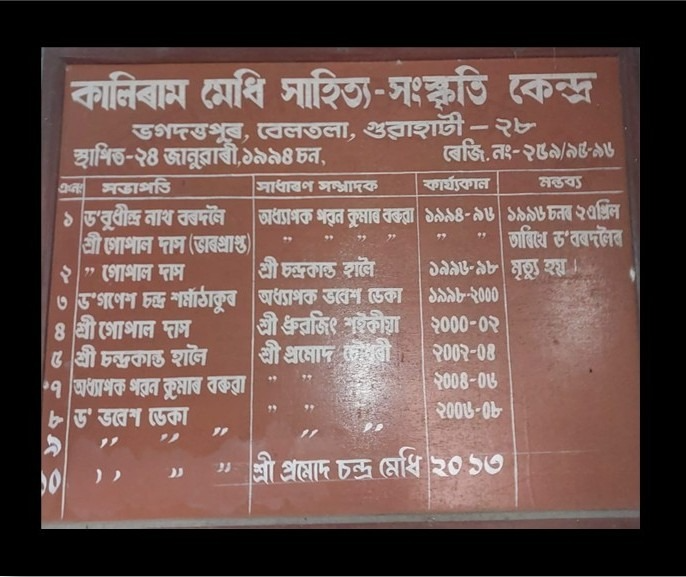 কালিৰাম মেধি সাহিত্য-সংস্কৃতি কেন্দ্ৰ
ভগদত্তপুৰ, বেলতলা, গুৱাহাটী – ২৮
স্থাপিত-২৪ জানুৱাৰী,১৯৯৪ চন, ৰেজি. নং- ২৫৯/৯৫-৯৬
এ.নং সভাপতি সাধাৰণ সম্পাদক কাৰ্য্যকাল মন্তব্য
১ ড° বুধীন্দ্ৰ নাথ বৰদলৈ অধ্যাপক পৱন কুমাৰ বৰুৱা ১৯৯৪-৯৬ ১৯৯৬ চনৰ ২ এপ্ৰিল
শ্ৰী গোপাল দাস (ভাৰপ্ৰাপ্ত) " " " " " " তাৰিখে ড° বৰদলৈৰ
২ " গোপাল দাস শ্ৰী চন্দ্ৰকান্ত হালৈ ১৯৯৬-৯৮ মৃত্যু হয় ।
৩ ড° গণেশ চন্দ্ৰ শৰ্মাঠাকুৰ অধ্যাপক ভবেশ ডেকা ১৯৯৮-২০০০
৪ শ্ৰী গোপাল দাস শ্ৰী ধ্ৰুৱজিৎ শইকীয়া ২০০০-০২
৫ শ্ৰী চন্দ্ৰকান্ত হালৈ শ্ৰী প্ৰমোদ চৌধৰী ২০০২-০৪
৭ অধ্যাপক পৱন কুমাৰ বৰুৱা " " " ২০০৪-০৬
৮ ড° ভবেশ ডেকা " " " ২০০৬-০৮
৯ " " " " "
১০ " " " শ্ৰী প্ৰমোদ চন্দ্ৰ মেধি ২০১৩